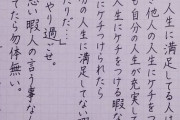 人生に満足してる人は
他人の人生にケチをつ
も自分の人生が充実して
人生にケチをつける暇な
にケチつけられたら
だ…
の人生に満足してない
やり過ごせ。
い暇人の言う事な
てたら勿体無い。